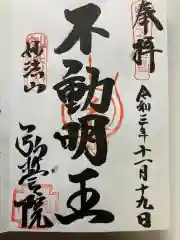 奉拝
令和三年十一月十九日
不動明王
妙法山
弥誓院